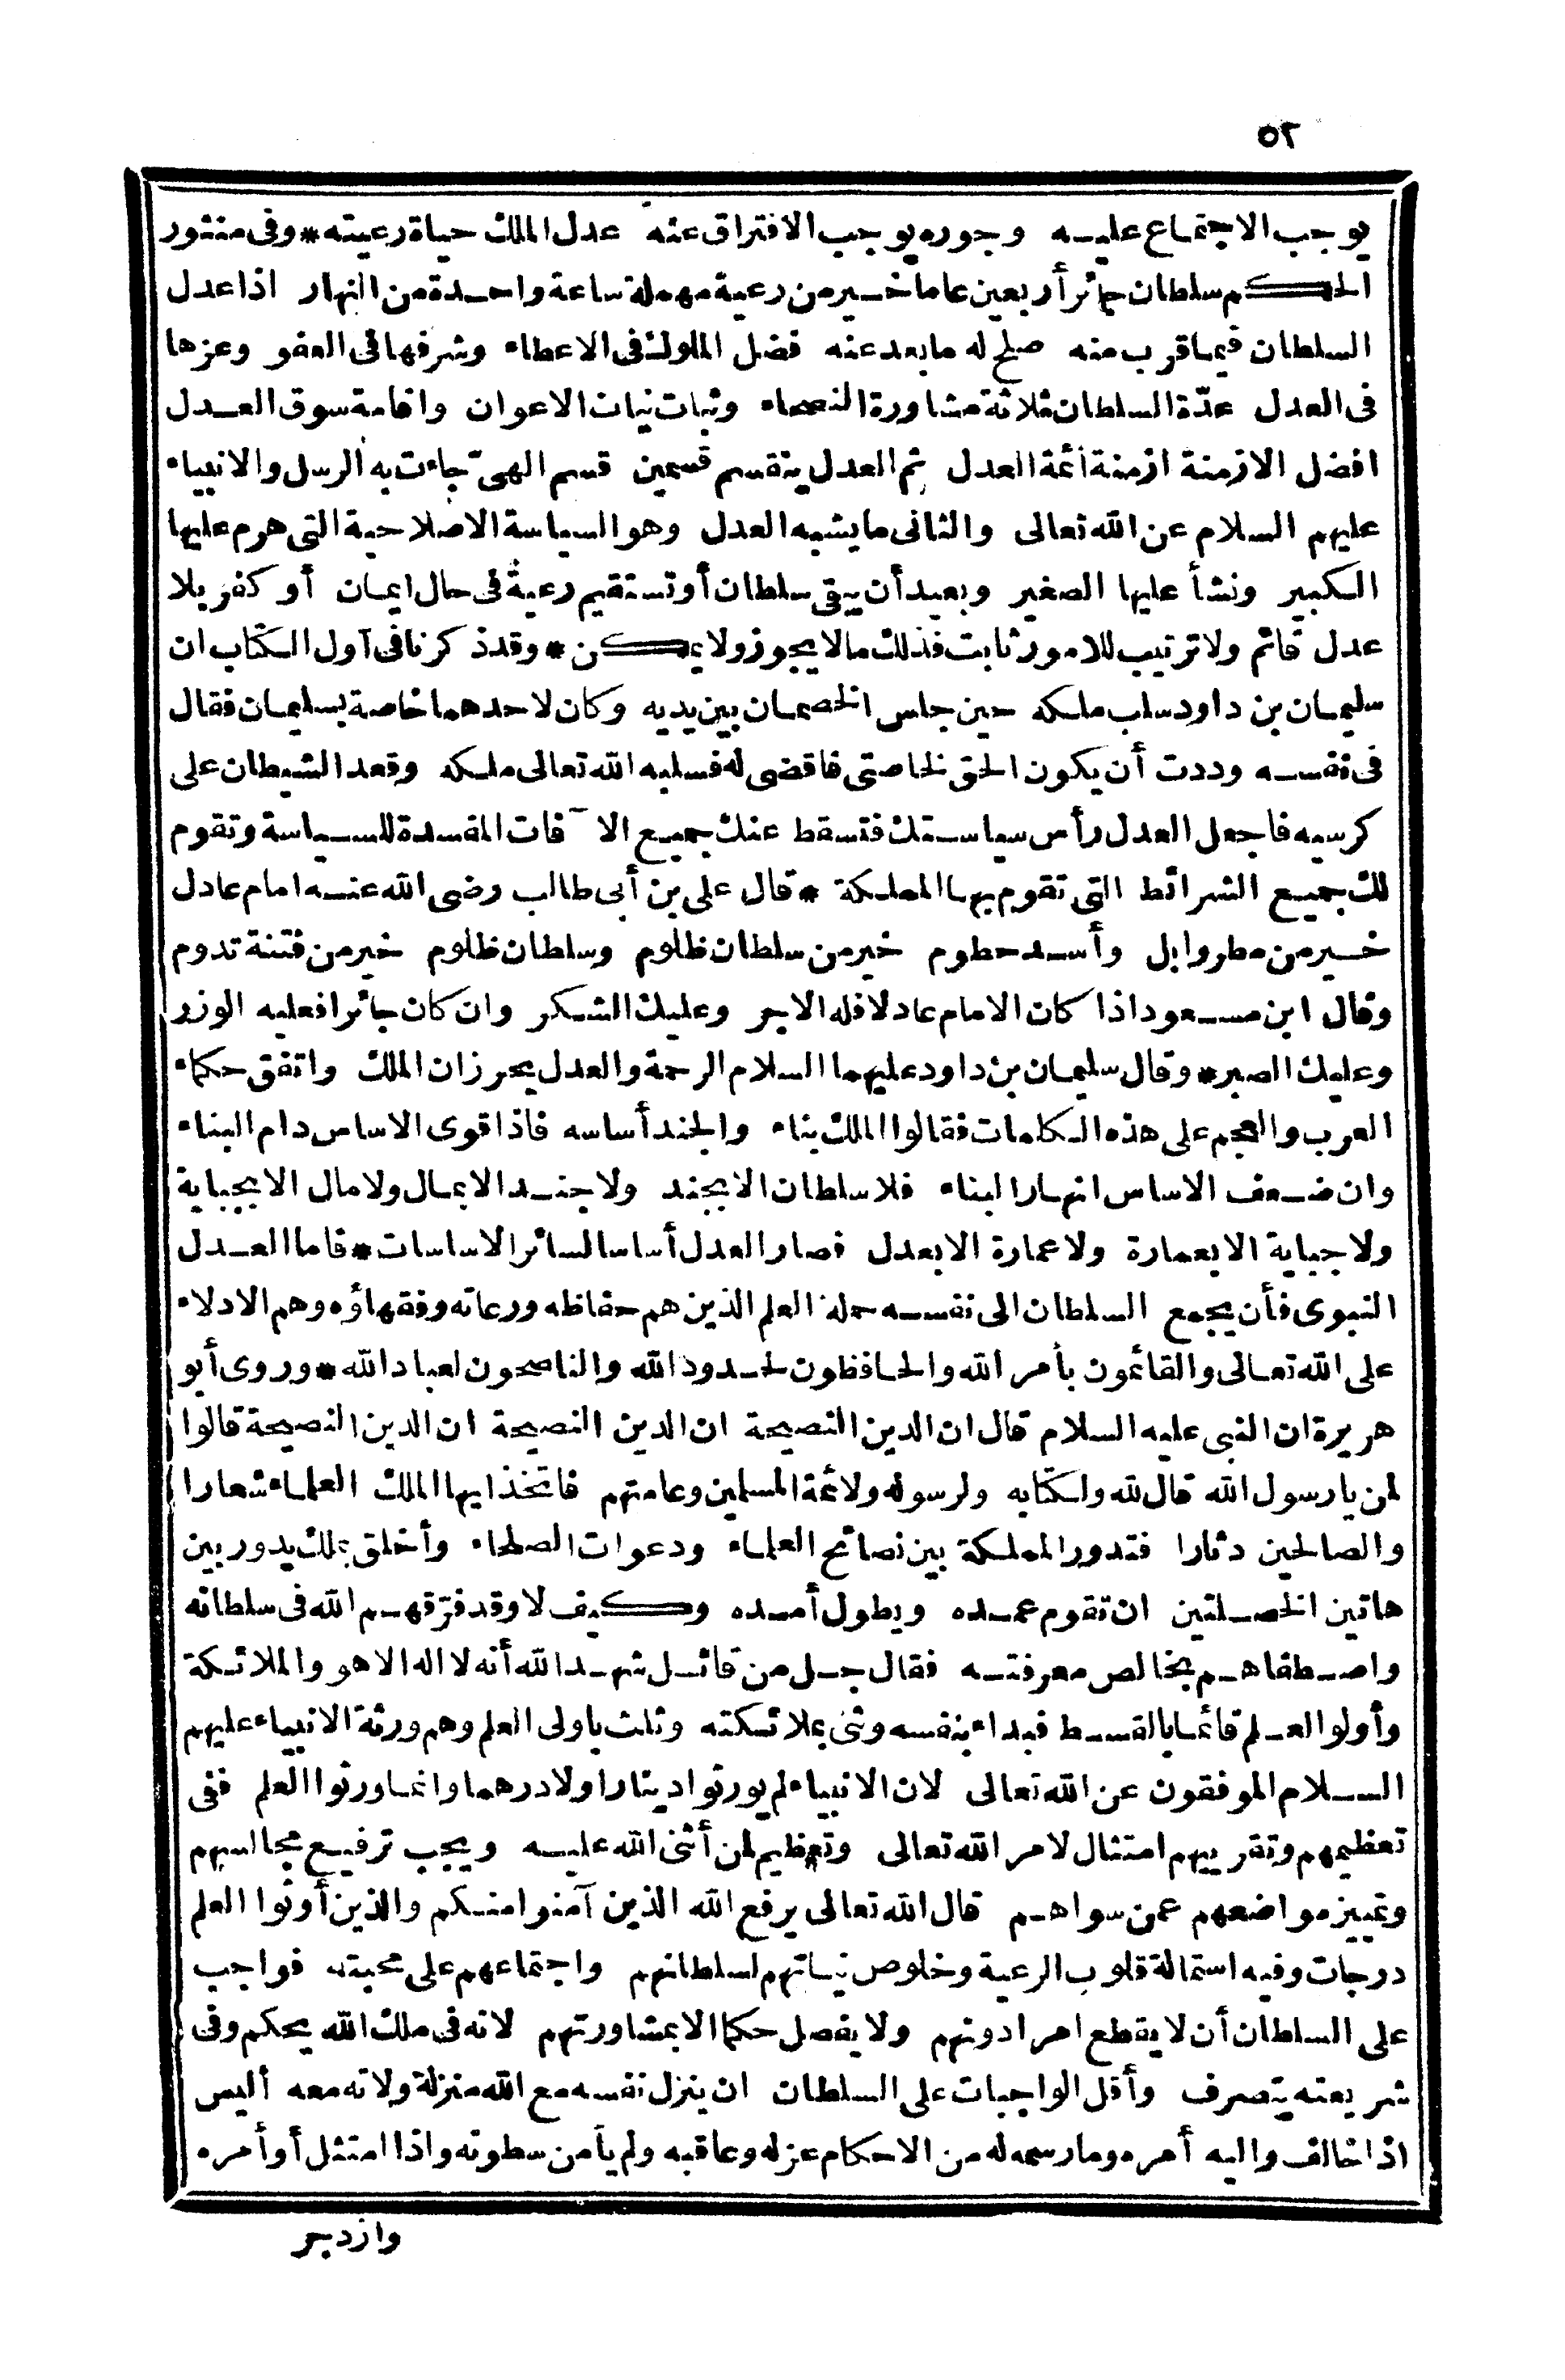 ٥٢
يوجب الاجتماع عليه وجوره يوجب الافتراق عنه عدل الملك حياة رعيته * وفى منثور
الحكم سلطان جائر أربعين عاما خير من رعية مهملة ساعة واحدة من النهار اذا عدل
السلطان فيما قرب منه صلح له ما بعد عنه فضل الملوك فى الاعطاء وشرفها فى العفو وعزها
فى العدل عدّة السلطان ثلاثة مشاورة النصحاء وثبات نيات الاعوان واقامة سوق العدل
افضل الازمنة ازمنة ائمة العدل ثم العدل ينقسم قسمين قسم الهىّ جاءت به الرسل والانبياء
عليهم السلام عن الله تعالى والثانى ما يشبه العدل وهو السياسة الاصلاحية التى هرم عليها
الكبير ونشأ عليها الصغير وبعيد أن يبقى سلطان أو تستقيم رعية فى حال ايمان أو كفر بلا
عدل قائم ولا ترتيب للامور ثابت فذلك مالا يجوز ولا يمكن * وقد ذكرنا فى أول الكتاب ان
سليمان بن داود سلب ملكه حين جلس الخصمان بين يديه وكان لاحدهما خاصة بسليمان فقال
فى نفسه وددت أن يكون الحق لخاصتى فاقضى له فسلبه الله تعالى ملكه وقعد الشيطان على
كرسيه فاجعل العدل رأس سياستك فتسقط عنك جميع الآفات المفسدة للسياسة وتقوم
لك جميع الشرائط التى تقوم بها المملكة * قال على بن أبى طالب رضى الله عنه امام عادل
خير من مطر وابل وأسد حطوم خير من سلطان ظلوم وسلطان ظلوم خير من فتنة تدوم
وقال ابن مسعود اذا كان الامام عادلا فله الاجر وعليك الشكر وان كان جائرا فعليه الوزر
وعليك الصبر * وقال سليمان بن داود عليهما السلام الرحمة والعدل يحرزان الملك واتفق حكماء
العرب والعجم على هذه الكلمات فقالوا الملك بناء والجند أساسه فاذا قوى الاساس دام البناء
وان ضعف الاساس انهار البناء فلا سلطان الا بجند ولا جند الا بمال ولا مال الا بجباية
ولا جباية الا بعمارة ولا عمارة الا بعدل فصار العدل أساسا لسائر الاساسات * فاما العدل
النبوى فأن يجمع السلطان الى نفسه حملة العلم الذين هم حفاظه ورعاته وفقهاؤه وهم الادلاء
على الله تعالى والقائمون بأمر الله والحافظون لحدود الله والناصحون لعباد الله * وروى أبو
هريرة ان النبى عليه السلام قال ان الدين النصيحة ان الدين النصيحة ان الدين النصيحة قالوا
لمن يا رسول الله قال لله ولكتابه ولرسوله ولائمة المسلمين وعامتهم فاتخذ ايها الملك العلماء شعارا
والصالحين دثارا فتدور المملكة بين نصائح العلماء ودعوات الصلحاء وأخلق بملك يدور بين
هاتين الخصلتين ان تقوم عمده ويطول أمده وكيف لا وقد فرّقهم الله فى سلطانه
واصطفاهم بخالص معرفته فقال جل من قائل شهد الله أنه لا اله الا هو والملائكة
وأولوا العلم قائما بالقسط فبداء بنفسه وثنى بملائكته وثلث باولى العلم وهم ورثة الانبياء عليهم
السلام الموفقون عن الله تعالى لان الانبياء لم يورثوا دينارا ولا درهما وانما ورثوا العلم ففى
تعظيمهم وتقريبهم امتثال لامر الله تعالى وتعظيم لمن أثنى الله عليه ويجب ترفيع مجالسهم
وتمييز مواضعهم عمن سواهم قال الله تعالى يرفع الله الذين آمنوا منكم والذين أوتوا العلم
درجات وفيه استمالة قلوب الرعية وخلوص نياتهم لسلطانهم واجتماعهم على محبته فواجب
على السلطان أن لا يقطع امرا دونهم ولا يفصل حكما الا بمشاورتهم لانه فى ملك الله يحكم وفى
شريعته يتصرف وأقل الواجبات على السلطان ان ينزل نفسه مع الله منزلة ولاته معه أليس
اذا خالف واليه أمره وما رسمه له من الاحكام عزله وعاقبه ولم يأمن سطوته واذا امتثل أوأمره
وازدجر